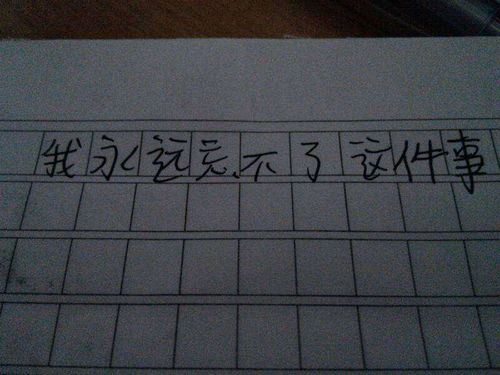 我永远忘不了这件事